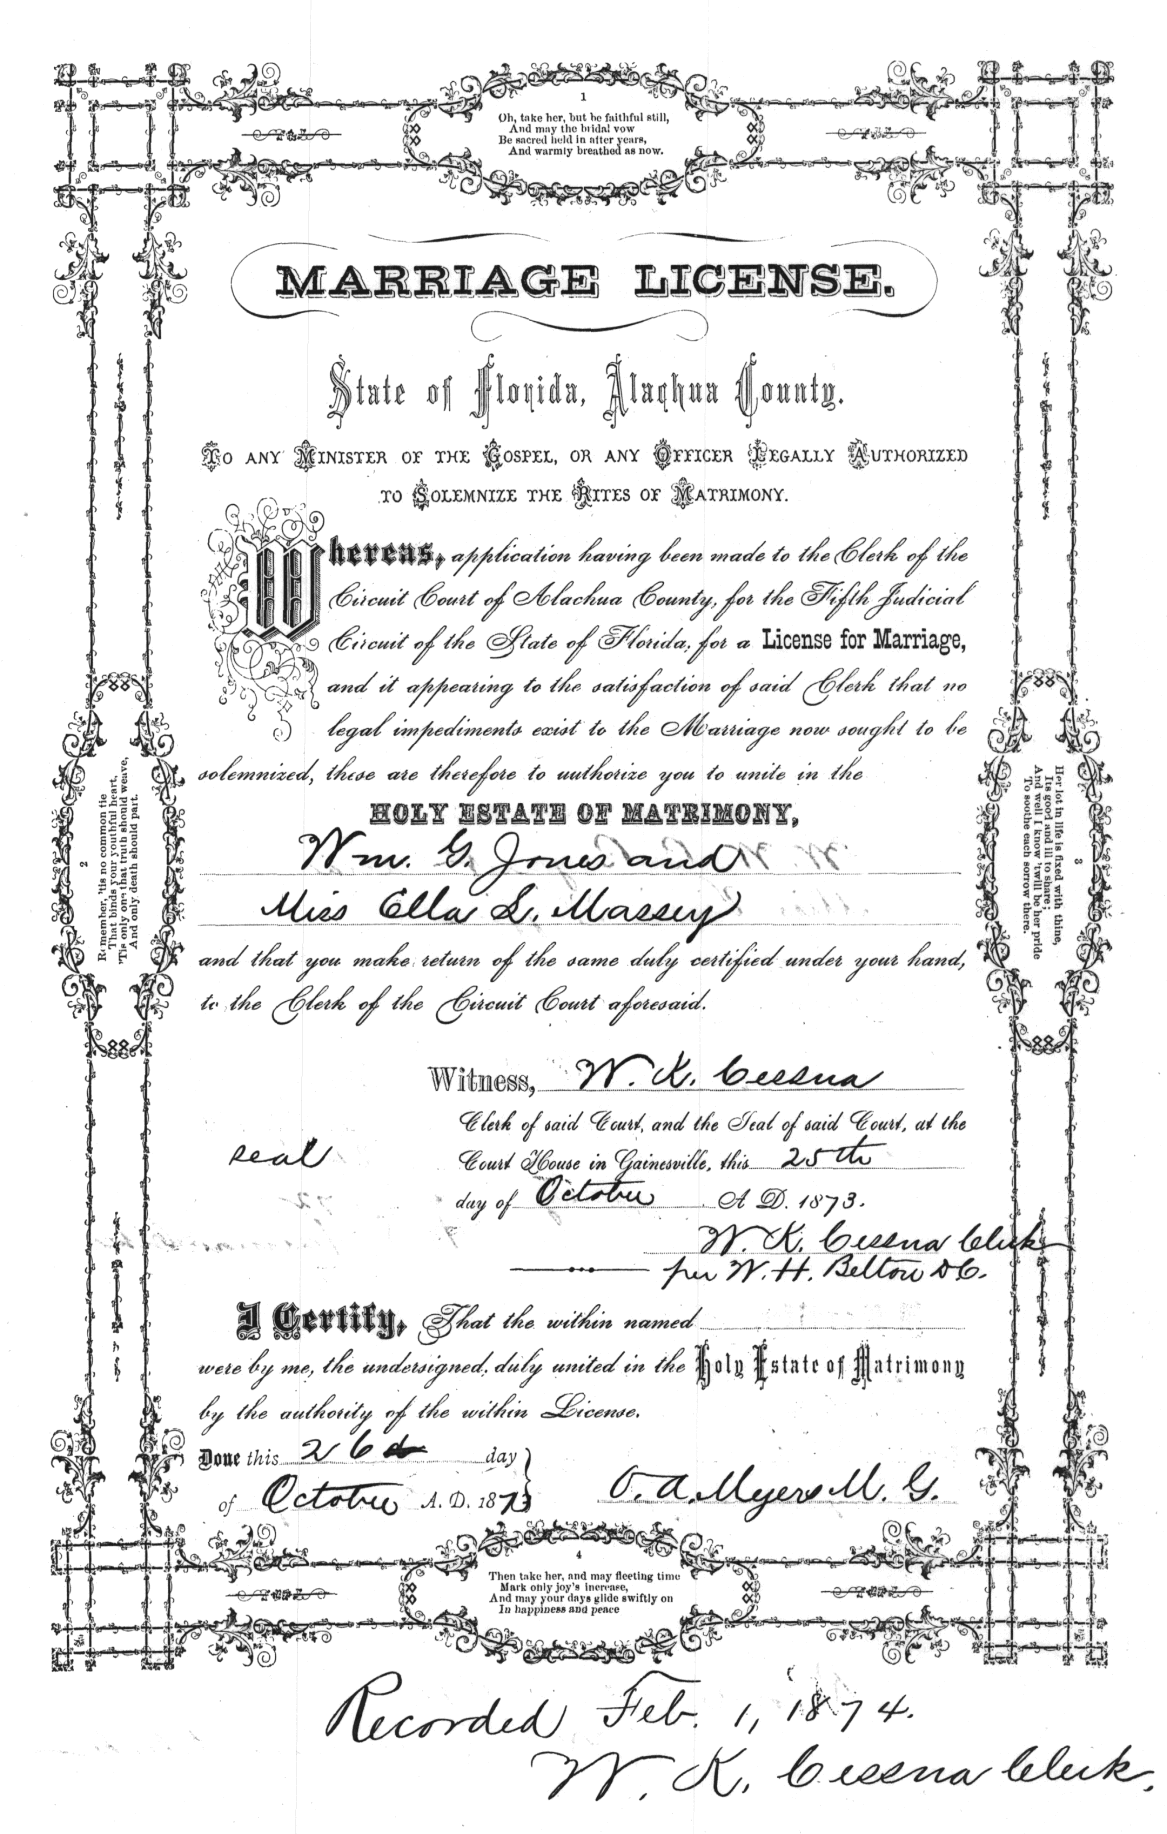 1
Oh, take her, but be faithful still,
And may the bridal vow
Be sacred held in after years,
And warmly breathed as now.
MARRIAGE LICENSE.
State of Florida, Alachua County.
To any Minister of the Gospel, or any Officer Legally Authorized
to Solemnize the Rites of Matrimony.
Whereas, application having been made to the Clerk of the
Circuit Court of Alachua County, for the Fifth Judicial
Circuit of the State of Florida, for a License for Marriage,
and it appearing to the satisfaction of said Clerk that no
legal impediments exist to the Marriage now sought to be
solemnized, these are therefore to authorize you to unite in the
HOLY ESTATE OF MATRIMONY,
Wm. G. Jones and
Miss Ella L. Massey
and that you make return of the same duly certified under your hand,
to the Clerk of the Circuit Court aforesaid.
2
Remember, 'tis no common tie
That binds your youthful heart,
'Tis only one that truth should weave,
And only death should part.
3
Her lot in life is fixed with thine,
Its good and ill to share;
And well I know 'twill be her pride
To soothe each sorrow there.
Witness, W. K. Cessna
Clerk of said Court, and the Seal of said Court, at the
seal
Court House in Gainesville, this 25th
day of October A. D. 1873.
W. K. Cessna Clerk
per W. H. Belton D C.
I Certify, That the within named
were by me, the undersigned, duly united in the Holy Estate of Matrimony
by the authority of the within License.
Done this 26th day
of October A. D. 1873
O. A. Myers M. G.
4
Then take her, and may fleeting time
Mark only joy's increase,
And may your days glide swiftly on
In happiness and peace
Recorded Feb. 1, 1874.
W. K. Cessna Clerk.